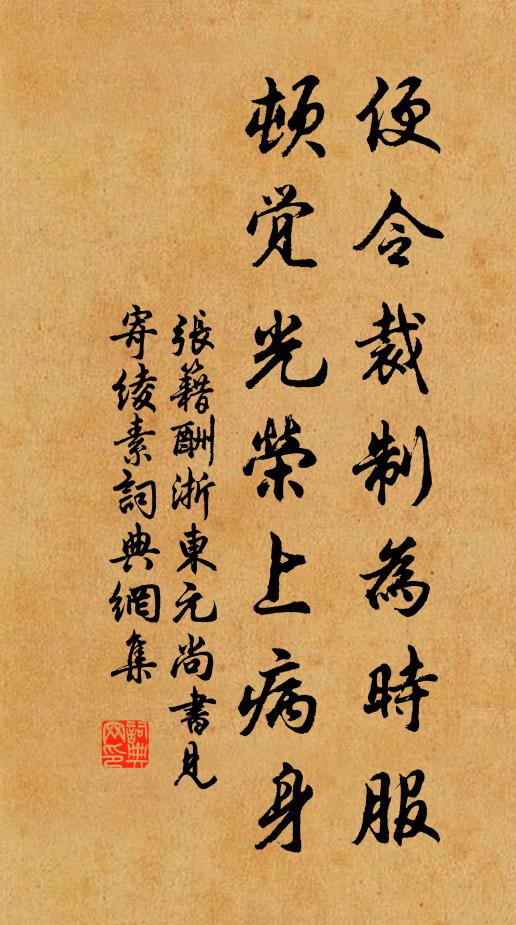 便令裁制為時服
頓覺光榮上病身
張籍酬浙東元尚書見
寄綾素詞典網集
詞典網印